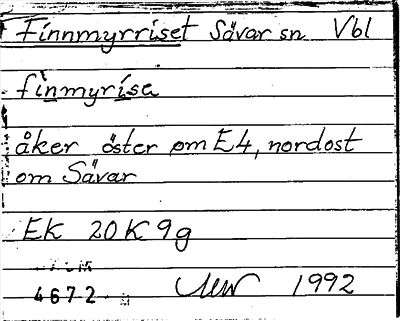 Finnmyrriset Sävar sn Vbl
finmyrise
åker öster om E4, nordost
om Sävar
EK 20K 9g
4672 1992